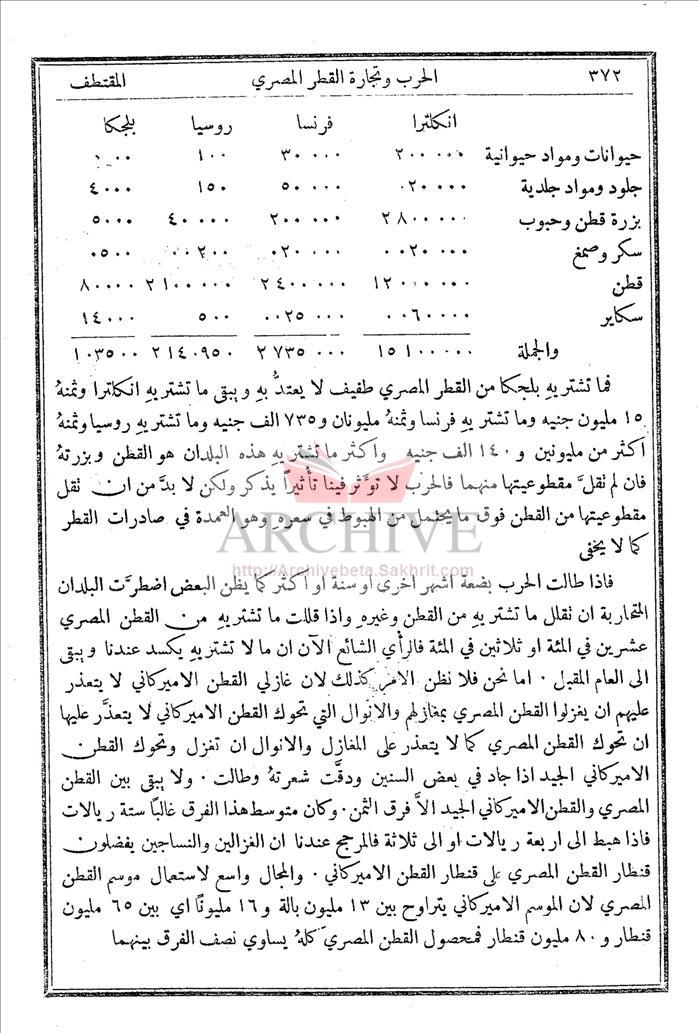 ٣٧٢ الحرب وتجارة القطر المصري المقتطف
انكلترا فرنسا روسيا بلجكا
حيوانات ومواد حيوانية ٢٠٠ ٠٠٠ ٣٠ ٠٠٠ ١٠٠
جلود ومواد جلدية ٠٢٠ ٠٠٠ ٥٠ ٠٠٠ ١٥٠ ٤٠٠٠
بزرة قطن وحبوب ٢٨٠٠ ٠٠٠ ٢٠٠ ٠٠٠ ٤٠ ٠٠٠ ٥٠٠٠
سكر وصمغ ٠٠٢٠ ٠٠٠ ٠٢٠ ٠٠٠ ٠٠ ٢٠٠ ٠٥٠٠
قطن ١٢٠٠٠ ٠٠٠ ٢٤٠٠ ٠٠٠ ٢١٠٠ ٠٠٠ ٨٠٠٠٠
سكاير ٠٠٦٠ ٠٠٠ ٠٠٢٥ ٠٠٠ ٥٠٠ ١٤٠٠٠
والجملة ١٥١٠٠ ٠٠٠ ٢٧٣٥ ٠٠٠ ٢١٤٠٩٥٠ ١٠٣٥٠٠
فما تشتريه بلجكا من القطر المصري طفيف لا يعتدُّ بهِ ويبقى ما تشتريهِ انكلترا وثمنهُ
١٥ مليون جنيه وما تشتريهِ فرنسا وثمنهُ مليونان و٧٣٥ الف جنيه وما تشتريهِ روسيا وثمنهُ
اكثر من مليونين و١٤٠ الف جنيه واكثر ما تشتريهِ هذه البلدان هو القطن وبزرتهُ
فان لم نقلَّ مقطوعيتها منهما فالحرب لا تؤثر فينا تأثيراً يذكر ولكن لا بدَّ من ان نقل
مقطوعيتها من القطن فوق ما يحتمل من الهبوط في سعرهِ وهو العمدة في صادرات القطر
كما لا يخفى
فاذا طالت الحرب بضعة اشهر اخرى او سنة او اكثر كما يظن البعض اضطرَّت البلدان
المتحاربة ان نقلل ما تشتريهِ من القطن وغيرهِ واذا قللت ما تشتريهِ من القطن المصري
عشرين في المئة او ثلاثين في المئة فالرأي الشائع الآن ان ما لا تشتريهِ يكسد عندنا ويبقى
الى العام المقبل ٠ اما نحن فلا نظن الامر كذلك لان غازلي القطن الاميركاني لا يتعذر
عليهم ان يغزلوا القطن المصري بمغازلهم والانوال التي تحوك القطن الاميركاني لا يتعذَّر عليها
ان تحوك القطن المصري كما لا يتعذر على المغازل والانوال ان تغزل وتحوك القطن
الاميركاني الجيد اذا جاد في بعض السنين ودقَّت شعرتهُ وطالت ٠ ولا يبقى بين القطن
المصري والقطن الاميركاني الجيد الاَّ فرق الثمن ٠ وكان متوسط هذا الفرق غالبًا ستة ريالات
فاذا هبط الى اربعة ريالات او الى ثلاثة فالمرجح عندنا ان الغزالين والنساجين يفضلون
قنطار القطن المصري على قنطار القطن الاميركاني ٠ والمجال واسع لاستعمال موسم القطن
المصري لان الموسم الاميركاني يتراوح بين ١٣ مليون بالة و١٦ مليونًا اي بين ٦٥ مليون
قنطار و٨٠ مليون قنطار فمحصول القطن المصري كلهُ يساوي نصف الفرق بينهما
ARCHIVE
http://Archivebeta.Sakhrit.com